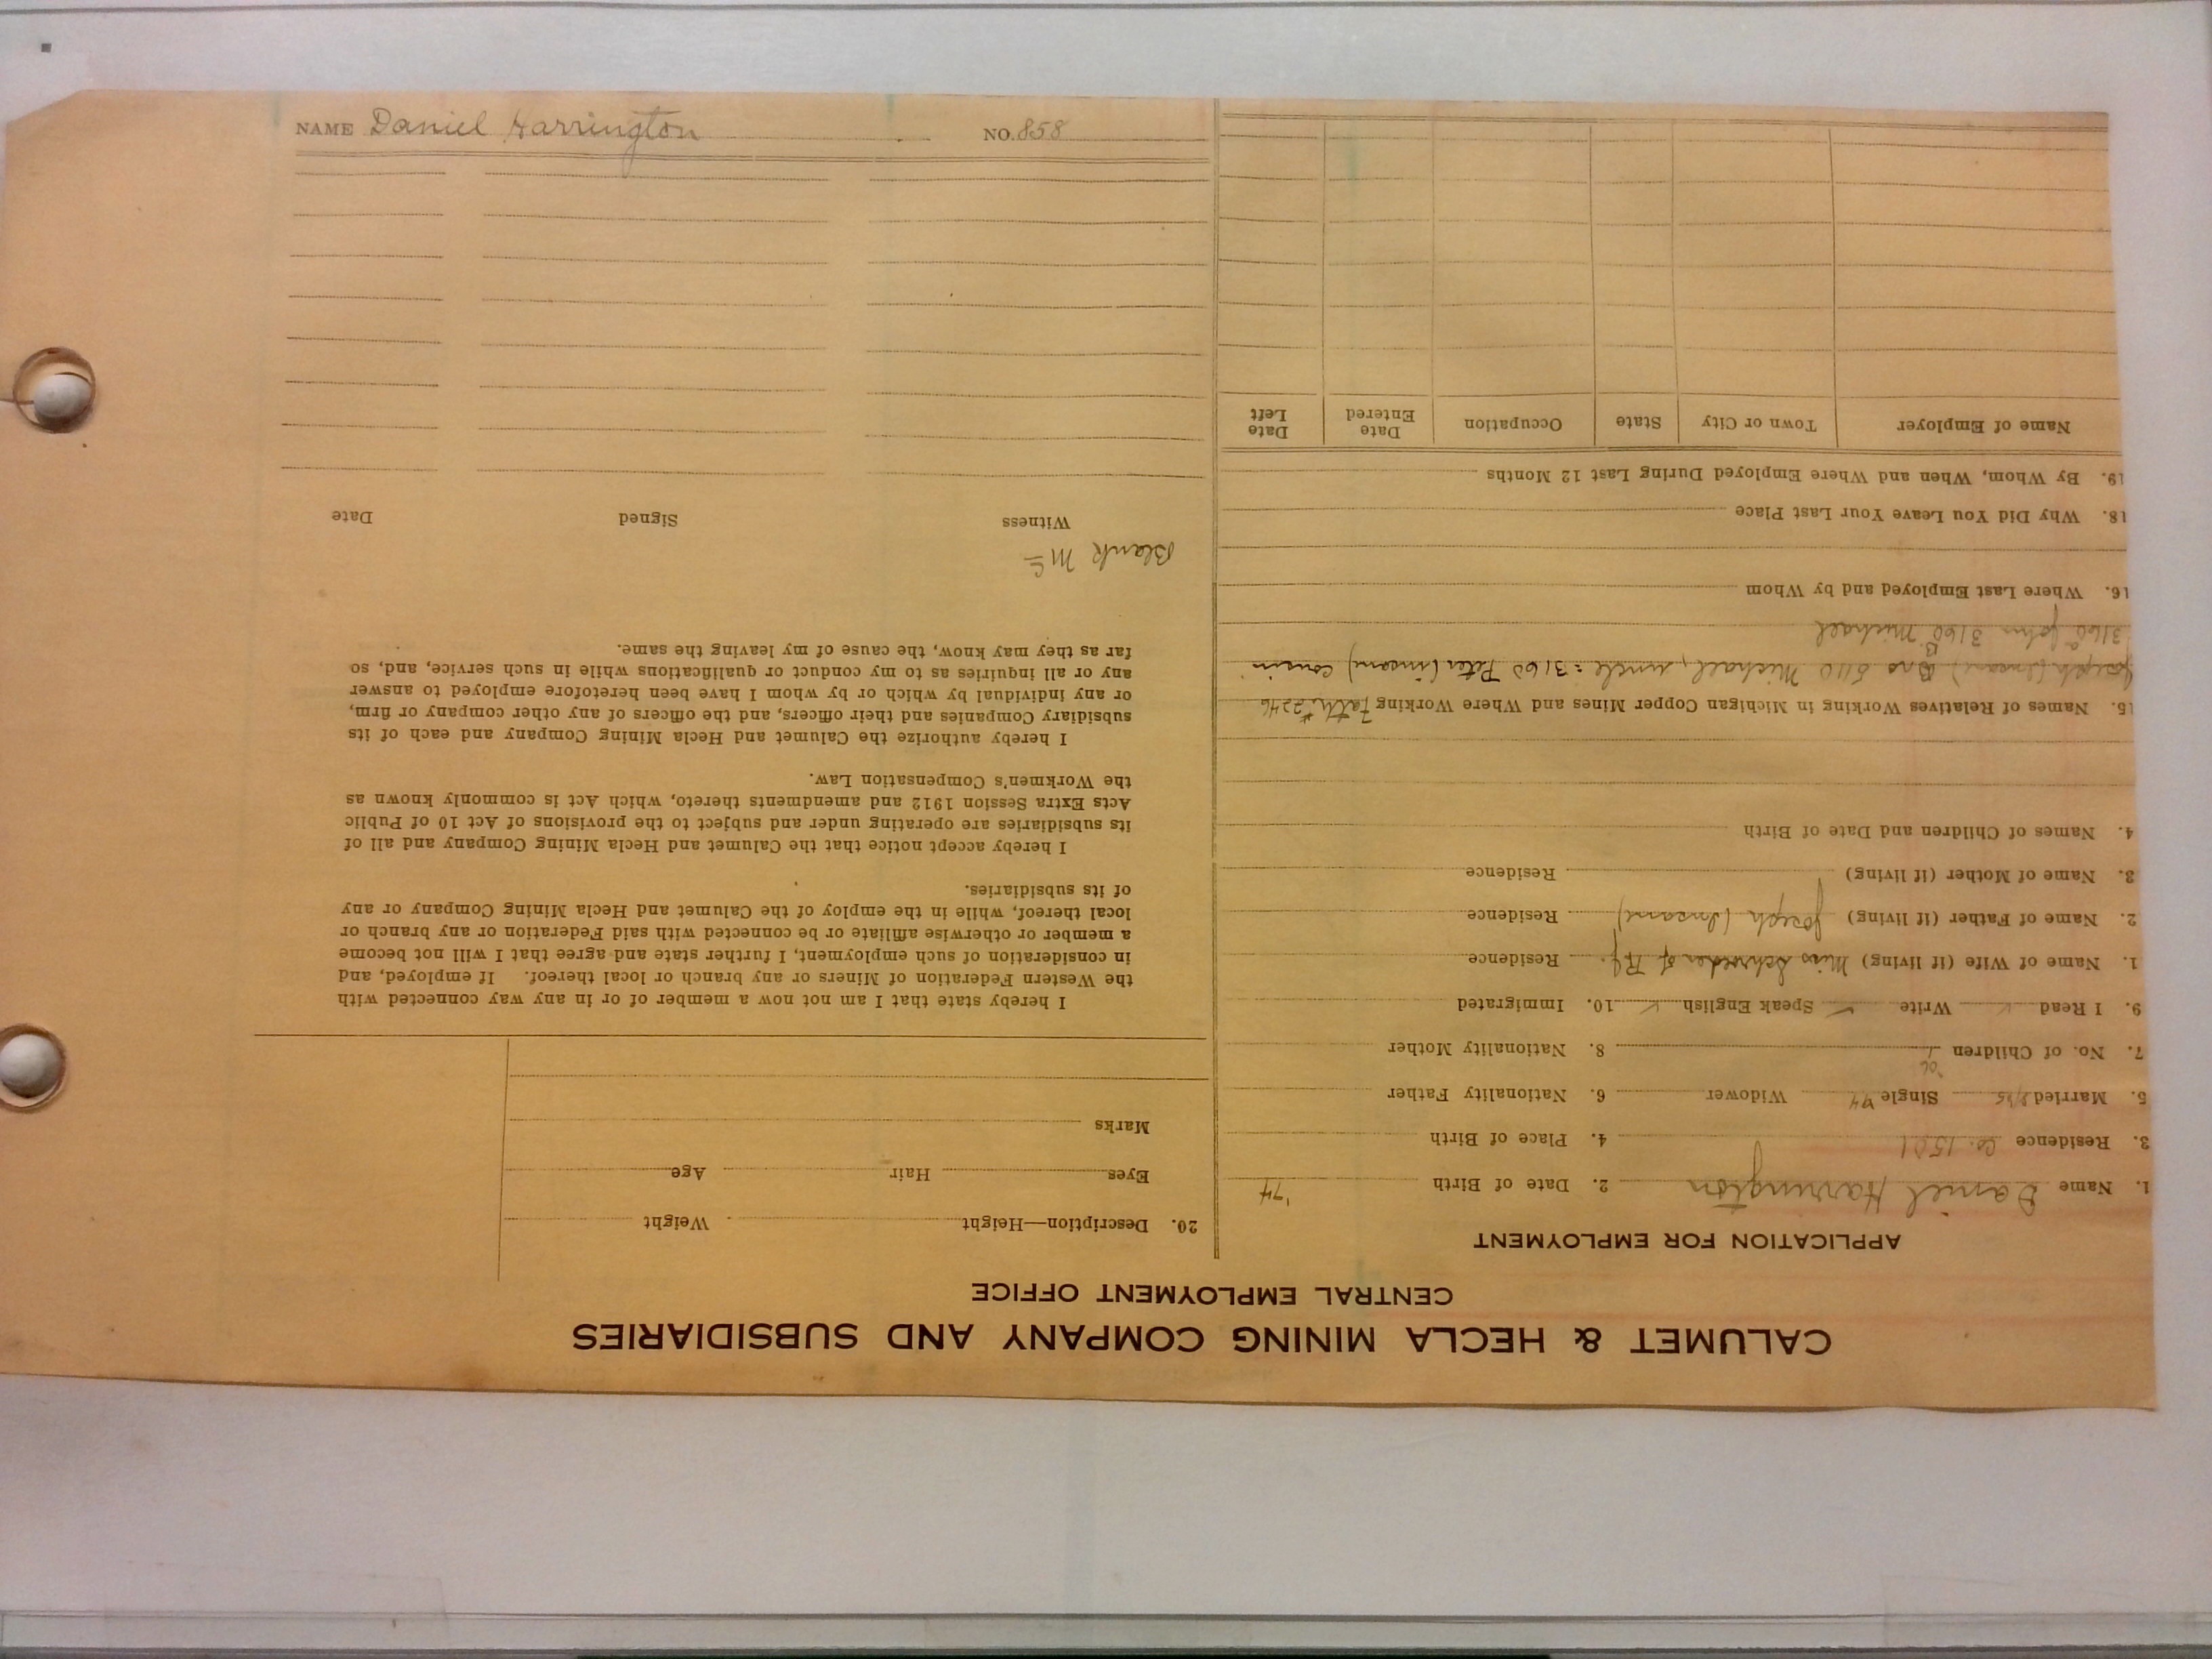 CALUMET & HECLA MINING COMPANY AND SUBSIDIARIES
CENTRAL EMPLOYMENT OFFICE
APPLICATION FOR EMPLOYMENT
1. Name Daniel Harrington 2. Date of Birth '74
3. Residence Co. 1501 4. Place of Birth
5. Married Single 44 Widower 6. Nationality Father
7. No. of Children 8. Nationality Mother
9. I Read ✓ Write ✓ Speak English ✓ 10. Immigrated
1. Name of Wife (if living) Miss Schroeder of Residence
2. Name of Father (if living) Joseph (Insane) Residence
3. Name of Mother (if living) Residence
4. Names of Children and Date of Birth
15. Names of Relatives Working in Michigan Copper Mines and Where Working Fath #2246
Joseph (Insane) Bro 5110 Michael, uncle = 3160 Peter (insane) cousin
3160 A John 3160 B Michael
16. Where Last Employed and by Whom
18. Why Did You Leave Your Last Place
19. By Whom, When and Where Employed During Last 12 Months
Name of Employer Town or City State Occupation Date Entered Date Left
20. Description—Height Weight
Eyes Hair Age
Marks
I hereby state that I am not now a member of or in any way connected with
the Western Federation of Miners or any branch or local thereof. If employed, and
in consideration of such employment, I further state and agree that I will not become
a member or otherwise affiliate or be connected with said Federation or any branch or
local thereof, while in the employ of the Calumet and Hecla Mining Company or any
of its subsidiaries.
I hereby accept notice that the Calumet and Hecla Mining Company and all of
its subsidiaries are operating under and subject to the provisions of Act 10 of Public
Acts Extra Session 1912 and amendments thereto, which Act is commonly known as
the Workmen's Compensation Law.
I hereby authorize the Calumet and Hecla Mining Company and each of its
subsidiary Companies and their officers, and the officers of any other company or firm,
or any individual by which or by whom I have been heretofore employed to answer
any or all inquiries as to my conduct or qualifications while in such service, and, so
far as they may know, the cause of my leaving the same.
Blank Mc
Witness Signed Date
NAME Daniel Harrington NO. 858